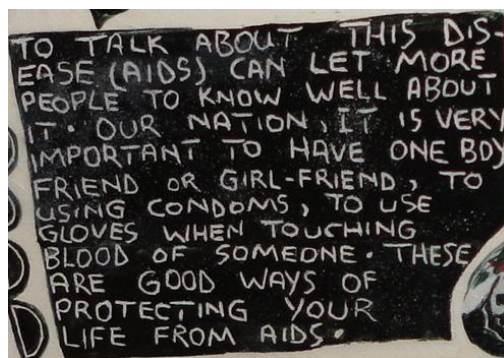 TO TALK ABOUT THIS DIS-
EASE (AIDS) CAN LET MORE
PEOPLE TO KNOW WELL ABOUT
IT. OUR NATION, IT IS VERY
IMPORTANT TO HAVE ONE BOY
FRIEND OR GIRL-FRIEND, TO
USING CONDOMS, TO USE
GLOVES WHEN TOUCHING
BLOOD OF SOMEONE. THESE
ARE GOOD WAYS OF
PROTECTING YOUR
LIFE FROM AIDS.